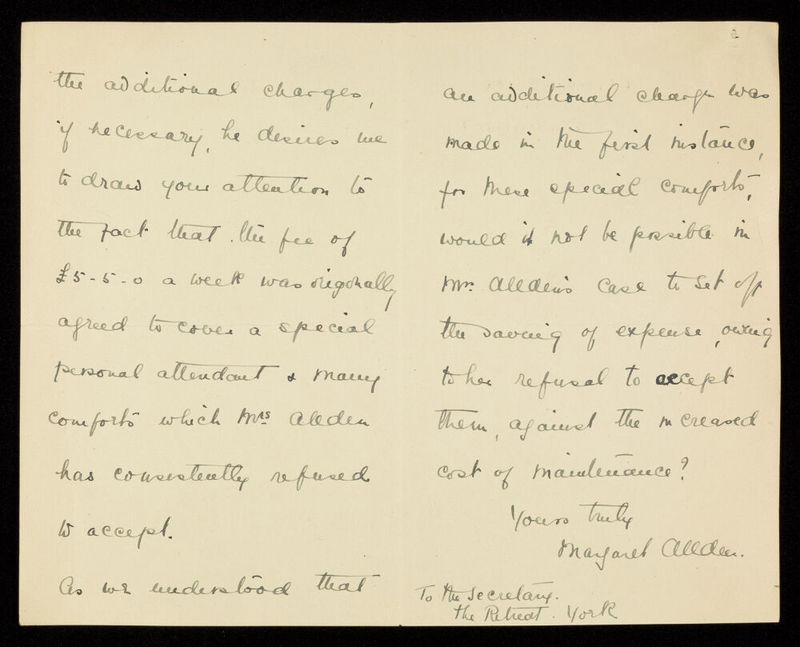 the additional charges,
if necessary, he desires me
to draw your attention to
the fact that the fee of
£5-5-0 a week was origonally
agreed to cover a special
personal attendant & many
comforts which Mrs Allden
has consistently refused
to accept.
As we understood that
an additional charge was
made in the first instance,
for these special comforts,
would it not be possible in
Mrs. Allden's case to set off
the saving of expense, owing
to her refusal to accept
them, against the increased
cost of maintenance?
Yours truly
Margaret Allden.
To the Secretary.
The Retreat. York